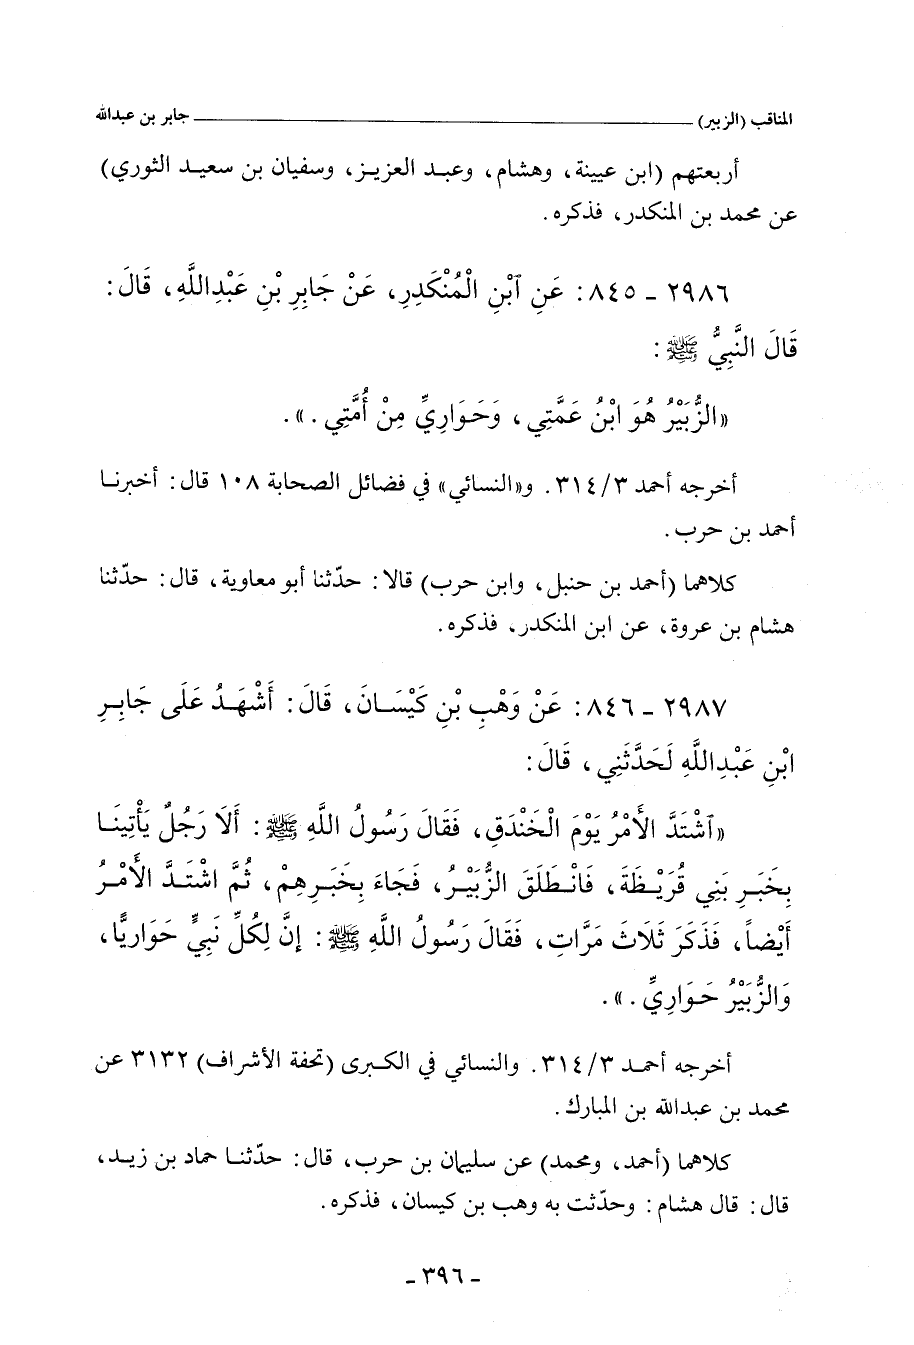 المناقب (الزبير) ــــــــــــــــــــ جابر بن عبدالله
أربعتهم (ابن عيينة، وهشام، وعبد العزيز، وسفيان بن سعيد الثوري)
عن محمد بن المنكدر، فذكره.
٢٩٨٦ - ٨٤٥: عَنِ آبْنِ الْمُنْكَدِرِ، عَنْ جَابِرِ بْنِ عَبْدِاللَّهِ، قَالَ:
قَالَ النَّبِيُّ ﷺ:
«الزُّبَيْرُ هُوَ ابْنُ عَمَّتِي، وَحَوَارِيِّ مِنْ أُمَّتِي.».
أخرجه أحمد ٣١٤/٣. و«النسائي» في فضائل الصحابة ١٠٨ قال: أخبرنا
أحمد بن حرب.
كلاهما (أحمد بن حنبل، وابن حرب) قالا: حدّثنا أبو معاوية، قال: حدّثنا
هشام بن عروة، عن ابن المنكدر، فذكره.
٢٩٨٧ - ٨٤٦: عَنْ وَهْبِ بْنِ كَيْسَانَ، قَالَ: أَشْهَدُ عَلَى جَابِرِ
ابْنِ عَبْدِاللَّهِ لَحَدَّثَنِي، قَالَ:
«آشْتَدَّ الأَمْرُ يَوْمَ الْخَنْدَقِ، فَقَالَ رَسُولُ اللَّهِ ﷺ: أَلَا رَجُلٌ يَأْتِينَا
بِخَبَرِ بَنِي قُرَيْظَةَ، فَانْطَلَقَ الزُّبَيْرُ، فَجَاءَ بِخَبَرِهِمْ، ثُمَّ اشْتَدَّ الأَمْرُ
أَيْضاً، فَذَكَرَ ثَلَاثَ مَرَّاتٍ، فَقَالَ رَسُولُ اللَّهِ ﷺ: إِنَّ لِكُلِّ نَبِيٍّ حَوَارِيًّا،
وَالزُّبَيْرُ حَوَارِيِّ.».
أخرجه أحمد ٣١٤/٣. والنسائي في الكبرى (تحفة الأشراف) ٣١٣٢ عن
محمد بن عبدالله بن المبارك.
كلاهما (أحمد، ومحمد) عن سليمان بن حرب، قال: حدّثنا حماد بن زيد،
قال: قال هشام: وحدّثت به وهب بن كيسان، فذكره.
- ٣٩٦ -